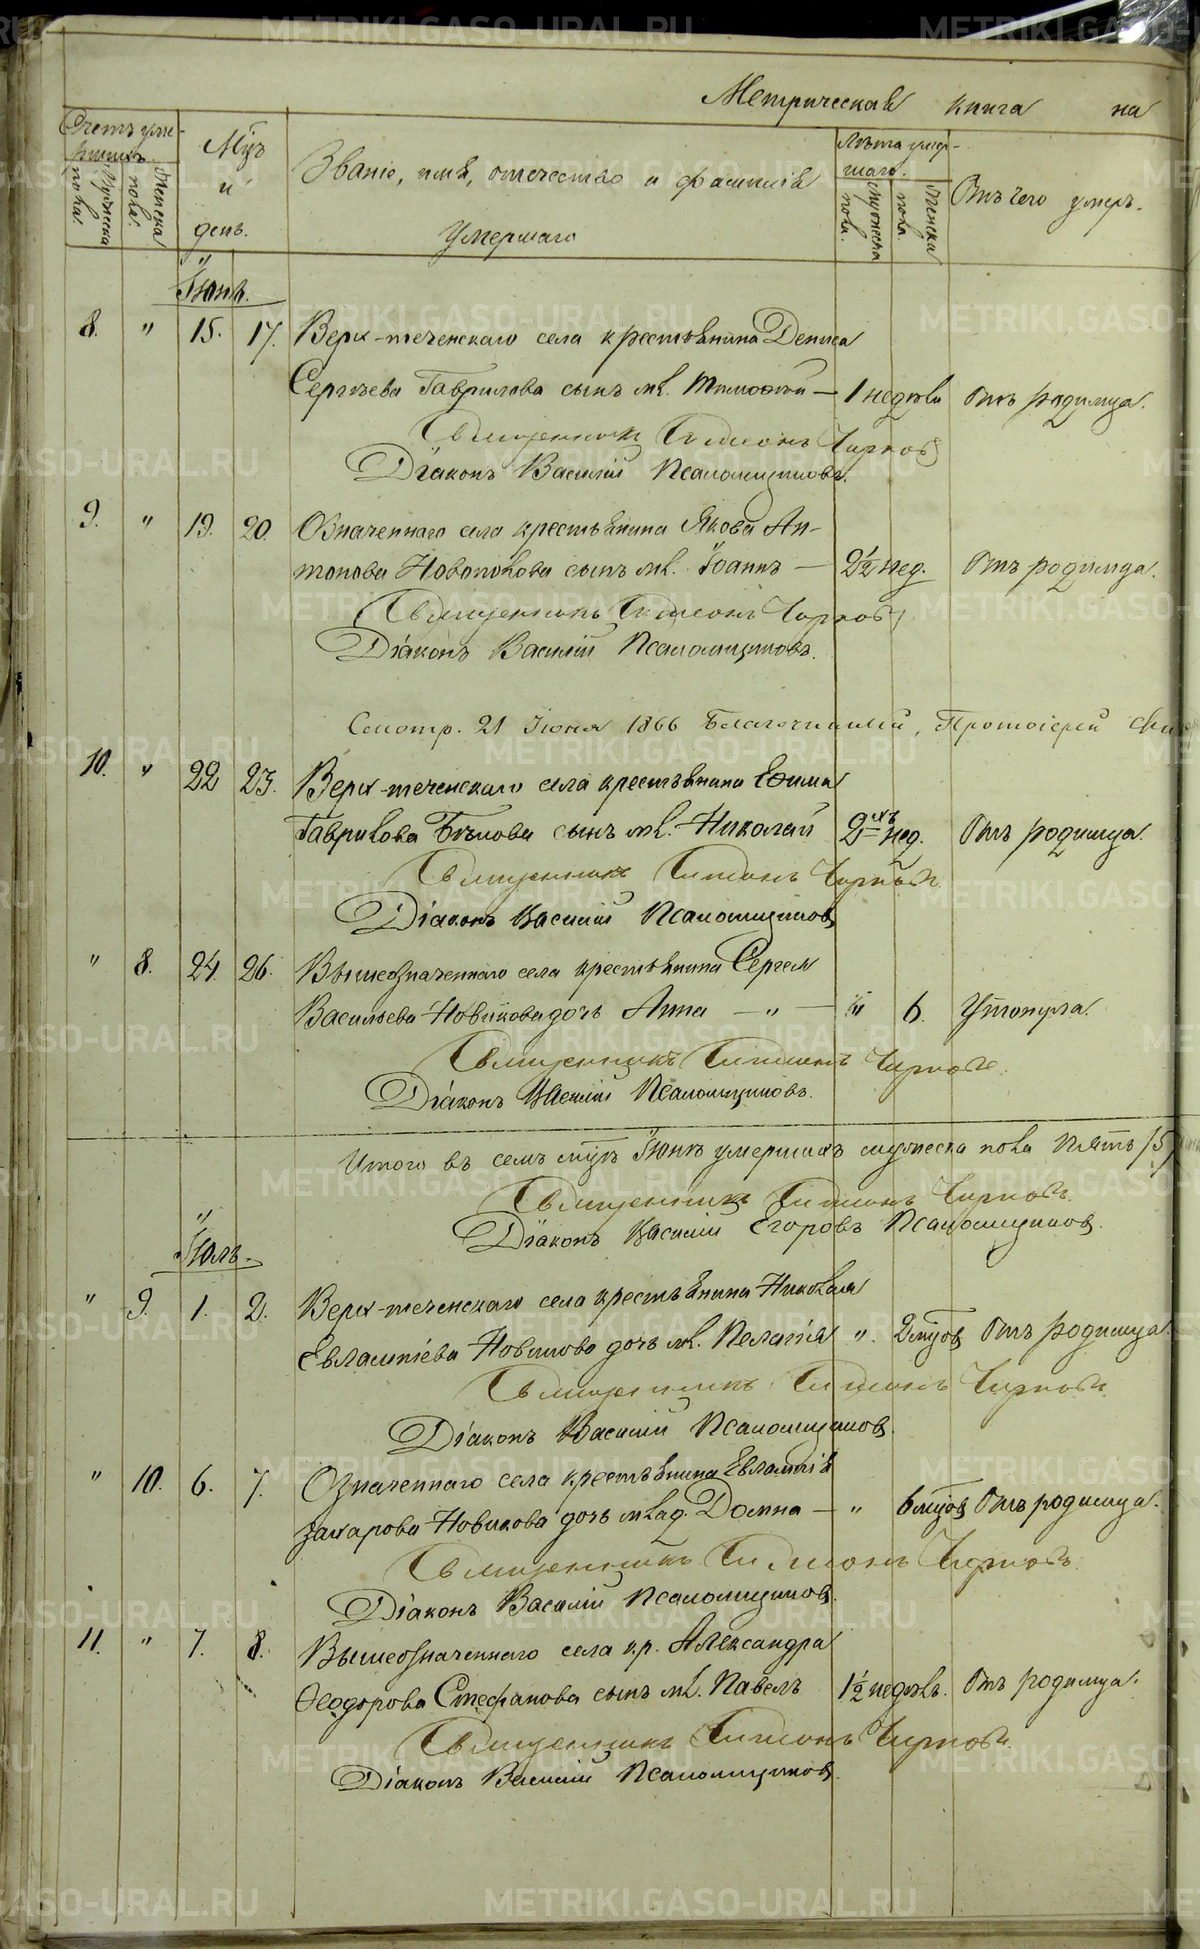 Метрическая книга на
Счетъ уме-
ршихъ.
Мужеска пола.
Женска пола.
Мцъ
и
день.
Званіе, имя, отчество и фамилія
умершаго
Лѣта умер-
шаго.
Мужеска пола.
Женска пола.
Отъ чего умеръ.
Іюнь.
8. " 15. 17. Верх-теченскаго села крестьянина Дениса
Сергѣева Гаврилова сынъ мл. Тимофей — 1 недѣли Отъ родимца.
Священникъ Симеонъ Чирковъ
Діаконъ Василій Псаломщиковъ.
9. " 19. 20. Означеннаго села крестьянина Якова Ан-
тонова сынъ мл. Іоаннъ — 2½ нед. Отъ родимца.
Священникъ Симеонъ Чирковъ
Діаконъ Василій Псаломщиковъ.
Смотр. 21 Іюня 1866 Благочинный, Протоіерей
10. " 22 23. Верх-теченскаго села крестьянина Ефима
Гаврилова Бѣлова сынъ мл. Николай 2хъ нед. Отъ родимца.
Священникъ Симеонъ Чирковъ
Діаконъ Василій Псаломщиковъ
" 8. 24. 26. Вышеозначеннаго села крестьянина Сергея
Васильева Новикова дочь Анна — " — " 6. Утонула.
Священникъ Симеонъ Чирковъ
Діаконъ Василій Псаломщиковъ.
Итого въ семъ мцѣ Іюнѣ умершихъ мужеска пола пять /5/
Священникъ Симеонъ Чирковъ
Діаконъ Василій Егоровъ Псаломщиковъ.
Іюль.
" 9. 1. 2. Верх-теченскаго села крестьянина Николая
Евлампіева Новикова дочь мл. Пелагія " 2 мцов Отъ родимца.
Священникъ Симеонъ Чирковъ
Діаконъ Василій Псаломщиковъ.
" 10. 6. 7. Означеннаго села крестьянина Евлампія
Захарова Новикова дочь млад. Домна — " 6 мцов Отъ родимца.
Священникъ Симеонъ Чирковъ
Діаконъ Василій Псаломщиковъ
11. " 7. 8. Вышеозначеннаго села кр. Александра
Ѳеодорова Стефанова сынъ мл. Павелъ 1½ недѣль. Отъ родимца.
Священникъ Симеонъ Чирковъ
Діаконъ Василій Псаломщиковъ
METRIKI.GASO-URAL.RU